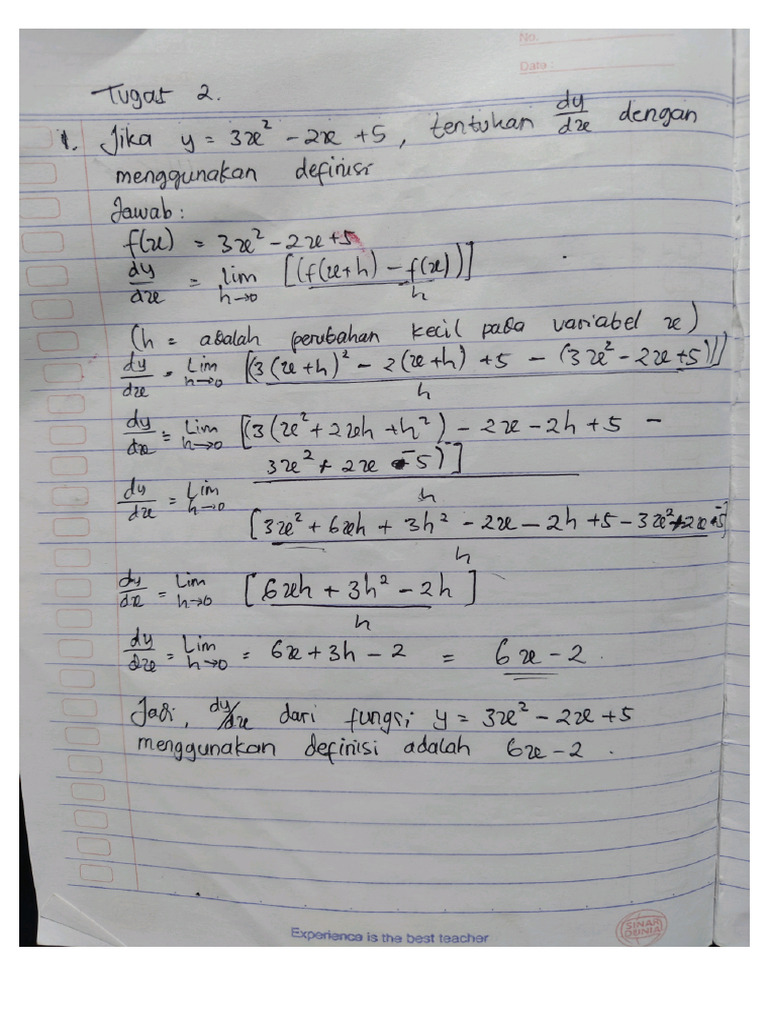 No.
Date:
Tugas 2.
1. Jika y = 3x² - 2x + 5, tentukan dy/dx dengan
menggunakan definisi
Jawab:
f(x) = 3x² - 2x + 5
dy/dx = lim h→0 [(f(x+h) - f(x))] / h
(h = adalah perubahan kecil pada variabel x)
dy/dx = Lim h→0 [(3(x+h)² - 2(x+h) + 5 - (3x² - 2x + 5))] / h
dy/dx = Lim h→0 [(3(x² + 2xh + h²) - 2x - 2h + 5 -
3x² + 2x - 5)] / h
dy/dx = Lim h→0
[3x² + 6xh + 3h² - 2x - 2h + 5 - 3x² + 2x - 5] / h
dy/dx = Lim h→0 [6xh + 3h² - 2h] / h
dy/dx = Lim h→0 = 6x + 3h - 2 = 6x - 2.
Jadi, dy/dx dari fungsi y = 3x² - 2x + 5
menggunakan definisi adalah 6x - 2.
Experience is the best teacher
SINAR DUNIA